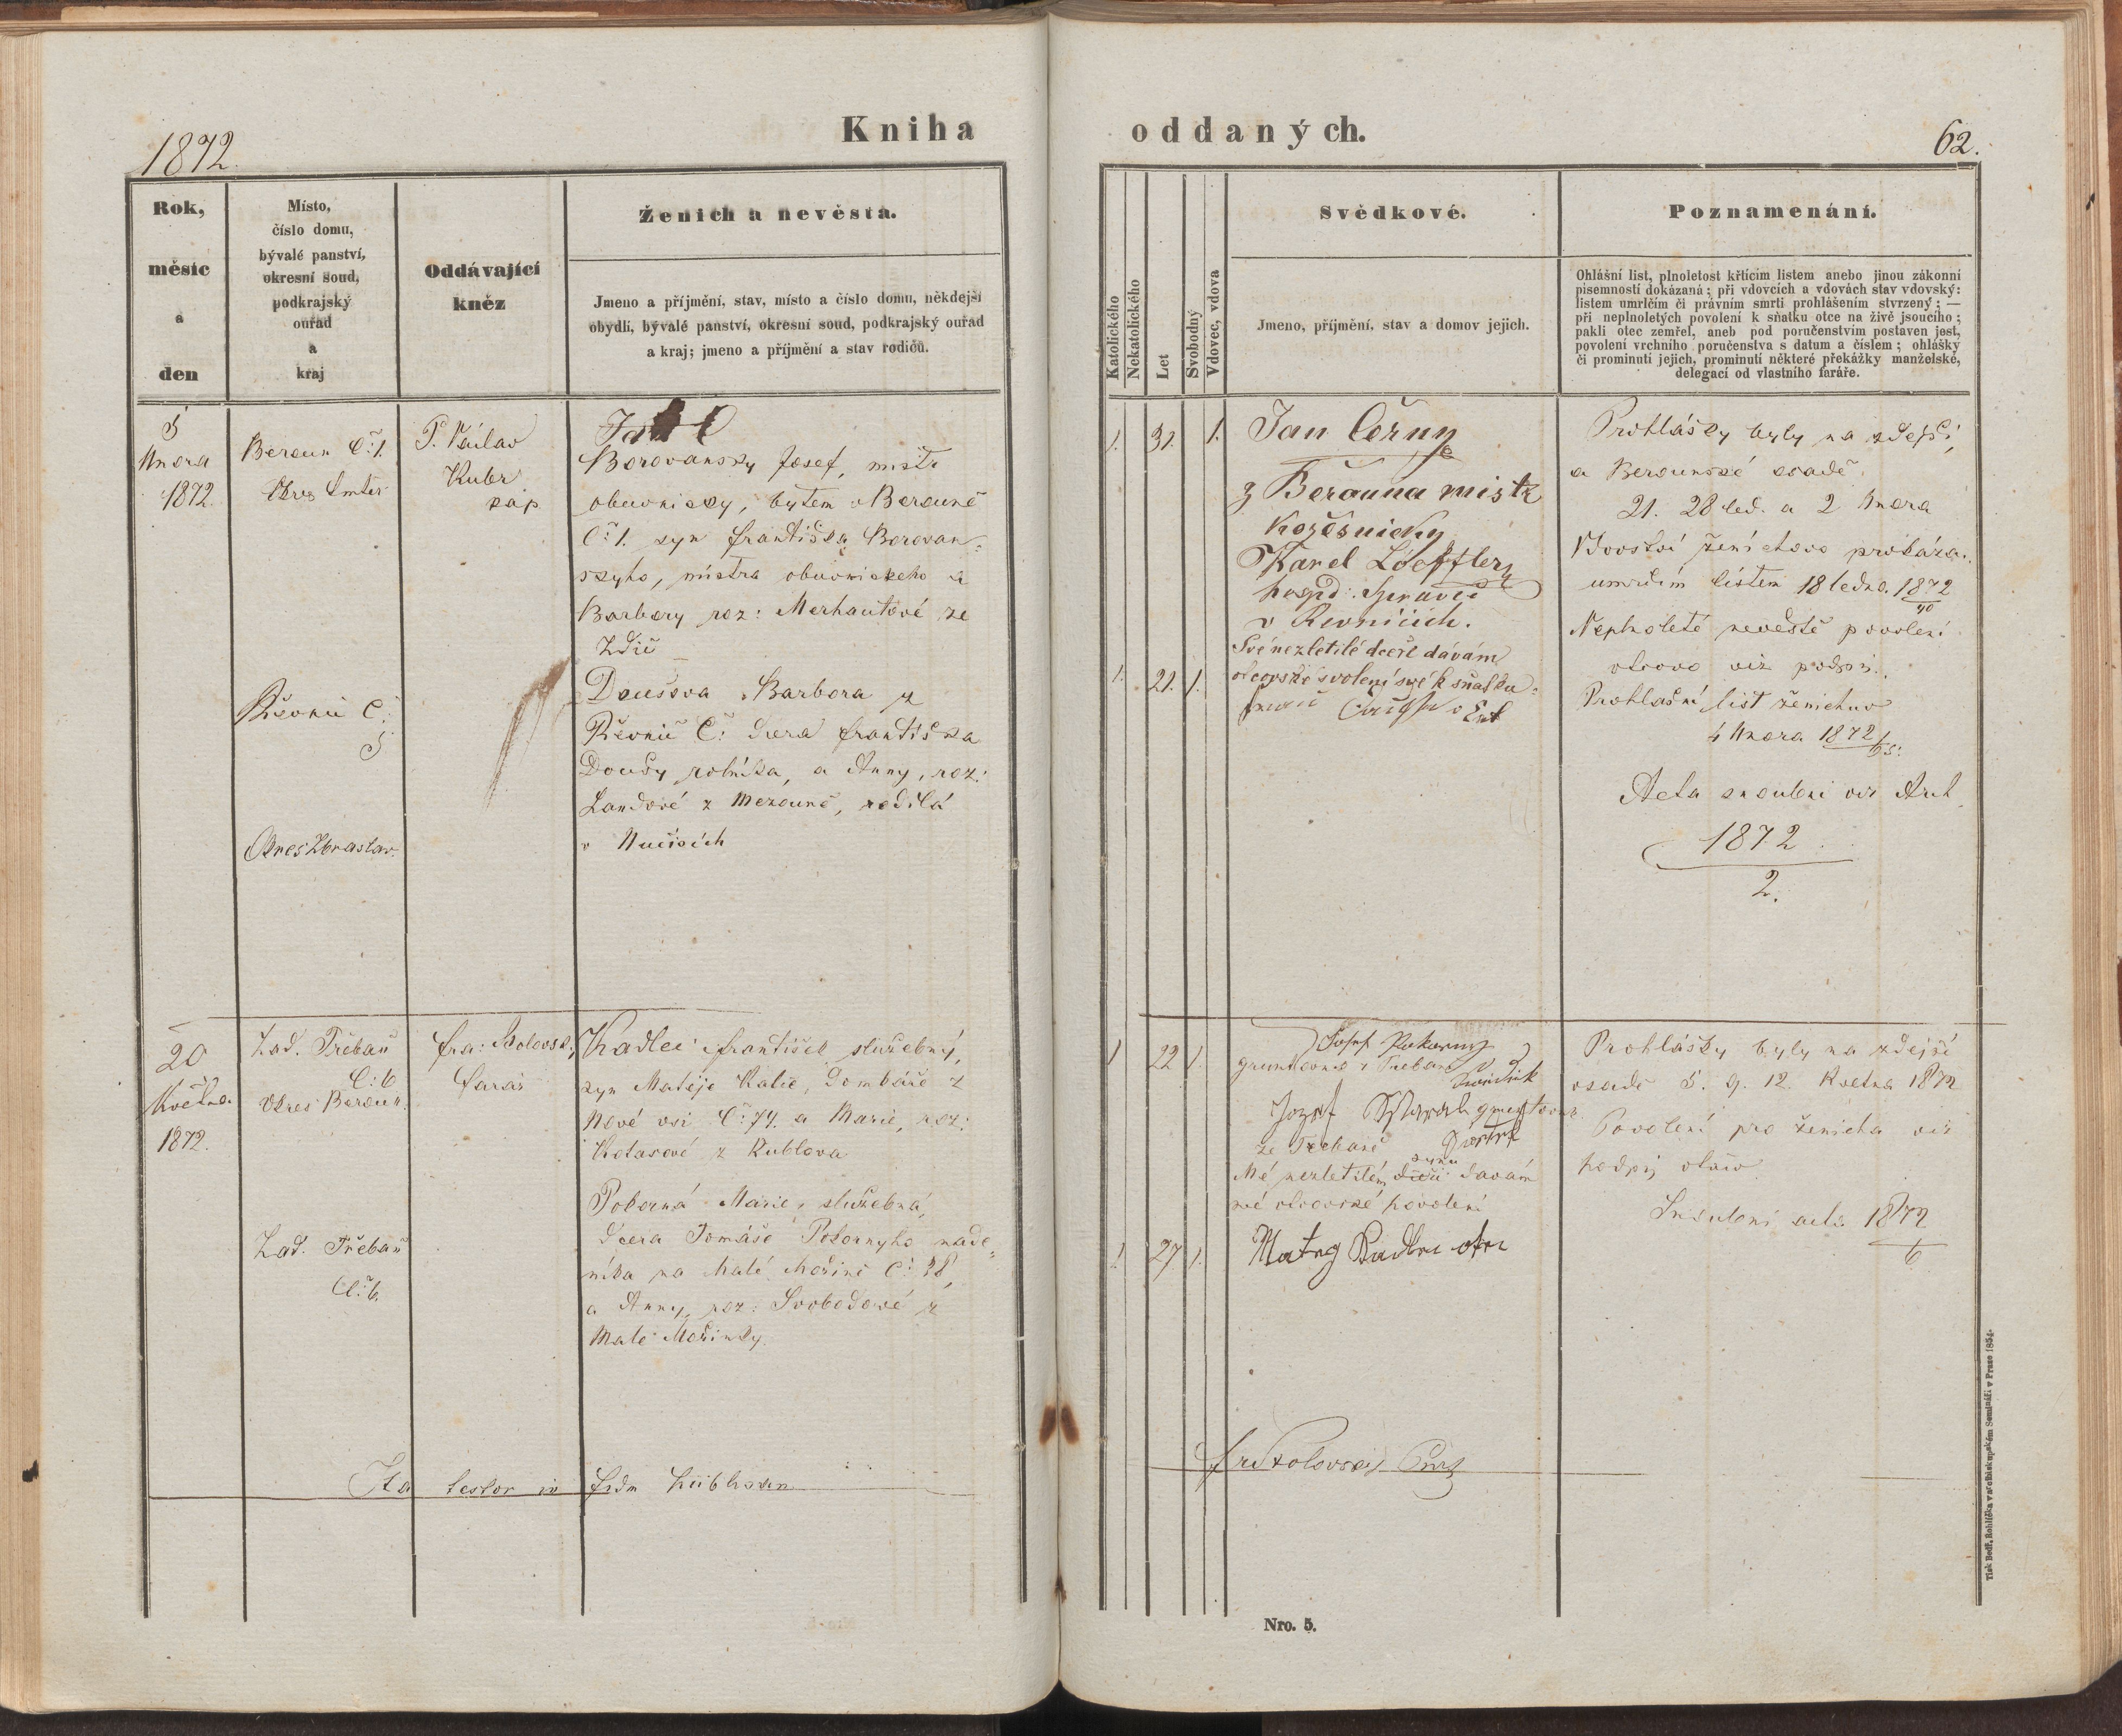 1872.
Kniha
Rok,
měsíc
a
den
Místo,
číslo domu,
bývalé panství,
okresní soud,
podkrajský
ouřad
a
kraj
Oddávající
kněz
Ženich a nevěsta.
Jmeno a příjmění, stav, místo a číslo domu, někdejší
obydlí, bývalé panství, okresní soud, podkrajský ouřad
a kraj; jmeno a příjmění a stav rodičů.
5
února
1872.
Beroun Č: 1.
Okres
P. Václav
kap
Borovansky Josef, mistr
obuvnicky, bytem v Berouně
Č: 1. syn Františka Borovan-
skyho, mistra obuvnickeho a
Barbory roz: Merhautové ze
Zdic
Řevnic Č:
5
Okres Zbraslav.
Doušova Barbora z
Řevnic Č: dcera Františka
Doušy rolníka, a Anny, roz:
Landové z Mezouně, rodilá
v Nučicích
20
Května
1872.
Zad. Třebaň
Č: 6
Okres Beroun.
farář
Kadlec František služebný,
syn Matěje z
Nové vsi Č: 74. a Marie, roz:
z Kublova
Zad. Třebaň
Č: 6.
Pokorná Marie, služebná,
dcera Tomáše Pokornyho nade-
níka na Malé Mořině Č: 38,
a Anny, roz: Svobodové z
Malé Mořinky.
oddaných.
62.
Katolického
Nekatolického
Let
Svobodný
Vdovec, vdova
Svědkové.
Jmeno, příjmění, stav a domov jejich.
Poznamenání.
Ohlášní list, plnoletost křtícím listem anebo jinou zákonní
písemností dokázaná; při vdovcích a vdovách stav vdovský:
listem umrlčím či právním smrti prohlášením stvrzený; —
při neplnoletých povolení k sňatku otce na živě jsoucího;
pakli otec zemřel, aneb pod poručenstvím postaven jest,
povolení vrchního poručenstva s datum a číslem; ohlášky
či prominutí jejich, prominutí některé překážky manželské,
delegací od vlastního faráře.
1. 31. 1.
Jan Černy
z Berouna mistr
kožešnický
Karel Loeffler
hospd: Správce
v Řevnicích.
1. 21. 1.
Své nezletilé dceři dávám
otcovské svolení své k sňatku
Prohlášky byly na zdejší
a Berounské osadě
21. 28 led. a 2 února
Vdovství ženichovo prokázá.
umrlčím listem 18 ledna. 1872
40
Neplnoleté nevěstě povolení
otcovo viz podpis.
Prohlašní list ženichuv
4 února 1872
Acta snoubní viz Arch
1872
2.
1 22 1.
v Třebani
Jozef
ze Trebaně
syna
Mé nezletilém dceři davám
mé otcovské povolení
1. 27 1.
Prohlášky byly na zdejší
osadě 5. 9. 12. Května 1872
Povolení pro ženicha viz
podpis otcův
Snoubní acta 1872
6
Nro. 5.
Tisk Bedř. Rohlíčka v arcibiskupském Semináři v Praze 1854.